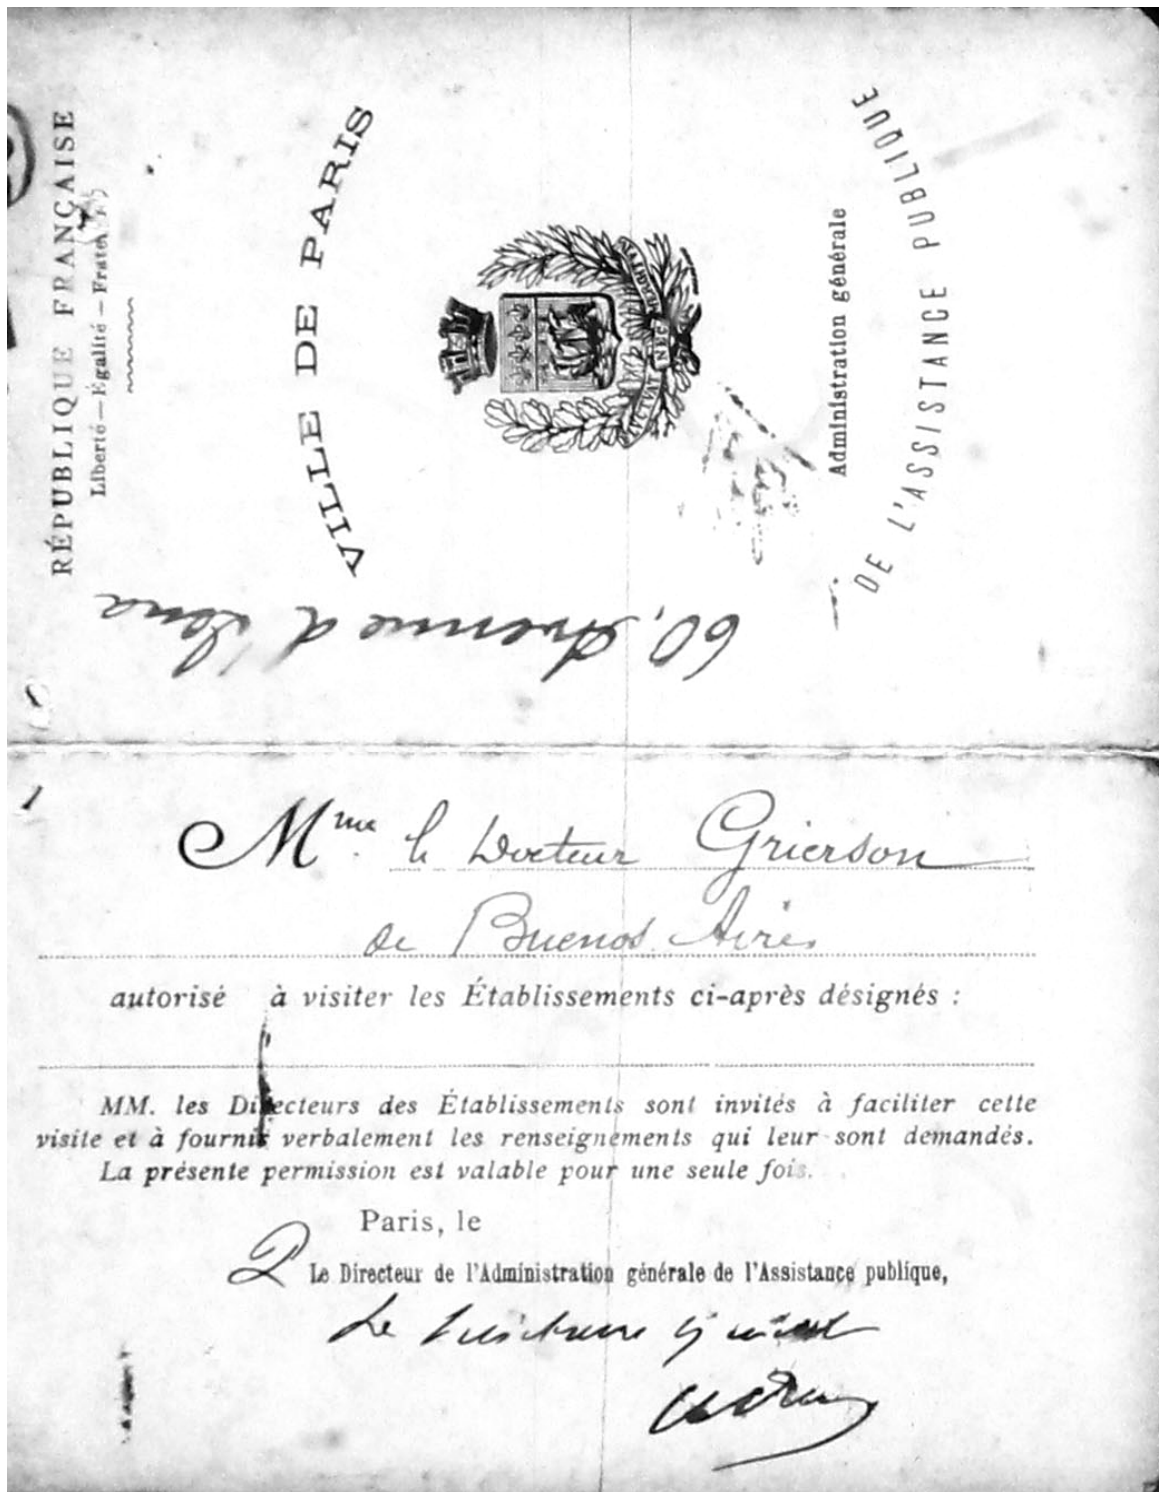 RÉPUBLIQUE FRANÇAISE
Liberté — Égalité — Frate
VILLE DE PARIS
FLUCTUAT NEC MERGITUR
Administration générale
DE L'ASSISTANCE PUBLIQUE
60, Avenue d'Iéna
Mme le Docteur Grierson
de Buenos Aires
autorisé à visiter les Établissements ci-après désignés :
MM. les Directeurs des Établissements sont invités à faciliter cette
visite et à fournir verbalement les renseignements qui leur sont demandés.
La présente permission est valable pour une seule fois.
Paris, le
Le Directeur de l'Administration générale de l'Assistance publique,
Le